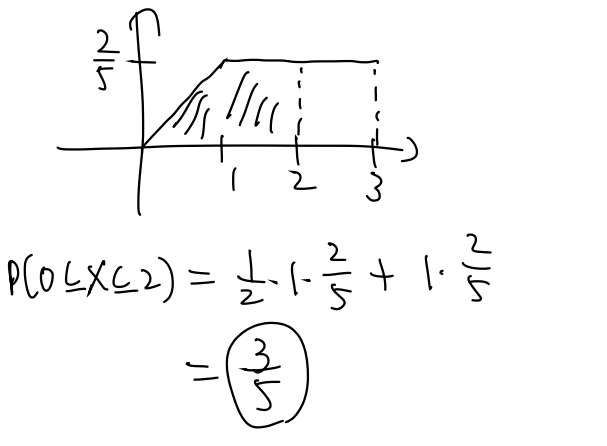 2/5
1 2 3
P(0 ≤ X ≤ 2) = 1/2 · 1 · 2/5 + 1 · 2/5
= 3/5